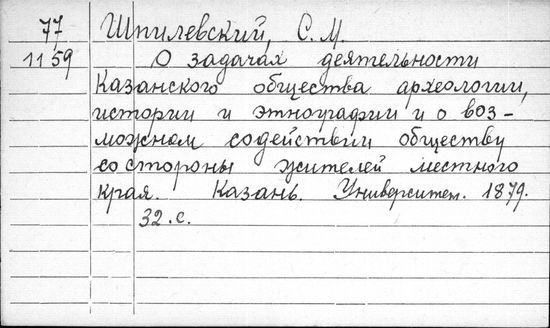 77 Шпилевский, С. М.
1159 О задачах деятельности
Казанского общества археологии,
истории и этнографии и о воз-
можном содействии обществу
со стороны жителей местного
края. Казань. Университет. 1879.
32. с.